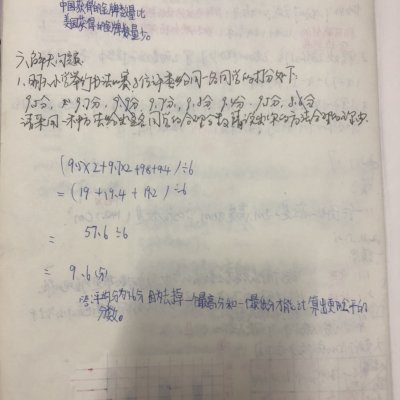 中国获得的金牌数量比
美国获得的金牌数量少。
六、解决问题。
1. 小学举行书法比赛,8位评委给同一名同学的打分如下:
9.5分, 9.7分, 9.9分, 9.7分, 9.8分, 9.4分, 9.5分, 8.6分
请采用一种方法给出这名同学的合理分数,
(9.5×2+9.7×2+9.8+9.4)÷6
=(19+19.4+19.2)÷6
= 57.6÷6
= 9.6(分)
答:平均分为9.6分 因为去掉一个最高分和一个最低分才能计算出更公平的
分数。